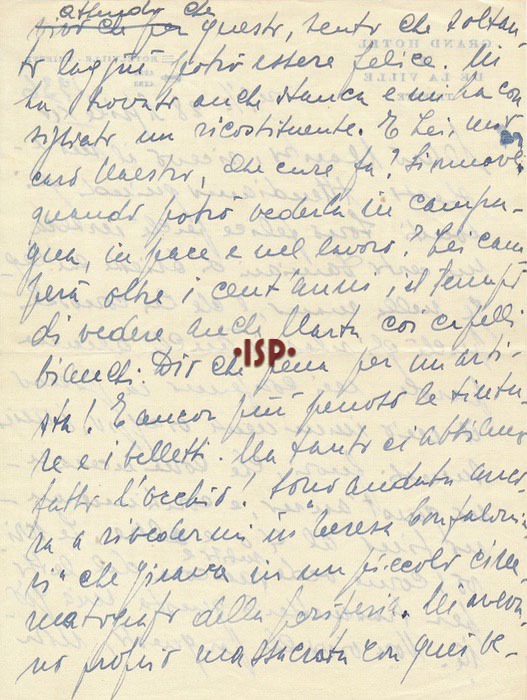 attendo che
più che per questo, sento che soltan-
to laggiù potrò essere felice. Mi
ha trovato anche stanca e mi ha con
sigliato un ricostituente. E Lei, mio
caro Maestro, che cure fa? Si muove?
quando potrò vederla in campa-
gna, in pace e nel lavoro? Lei cam
perà oltre i cent'anni, il tempo
di vedere anche Marta coi capelli
bianchi. Dio che pena per un arti-
sta! E ancor più penoso le tintu-
re e i belletti. Ma tanto ci abbiamo
fatto l'occhio! Sono andata anco
ra a rivedermi in "Teresa Confalonie
ri" che girava in un piccolo cine
matografo della periferia. Mi aveva-
no proprio massacrata con quei ve-
GRAND HOTEL
DE LA VILLE
·ISP·